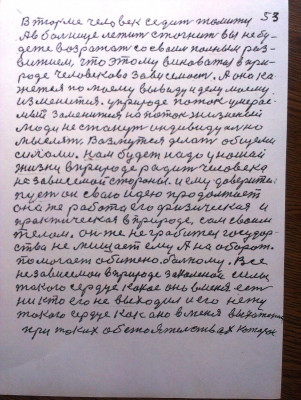 53
В тюрме человек седит томиту
А в болнице летит стогнит вы небу
дете возражат со своим полным раз
витием, что этому виноватая в при
роде человеково зависемаст. А оно ка
жется по моему выводу и делу моему
изменится. у природе поток умерае
мый заменится на поток жизненай
люди не станут индивидуално
мыслят. Возмутся делат общими
силами. Нам будет надо у нашай
жизни в природе радит человека
не зависемай стороны. и ему доверитем
пуст он сваю идею продолжает
она же работа его физическая и
практическая в природе. сам своим
телом. он же не грабител государ
ства не мишает ему А на оборат
помогает обижено болному. Все
независемои в природе законае силы
такого сердце какое оно в меня ест
ни кто его не выходил и его нету
такого сердце как оно в меня
при таких обстоятелствах которое